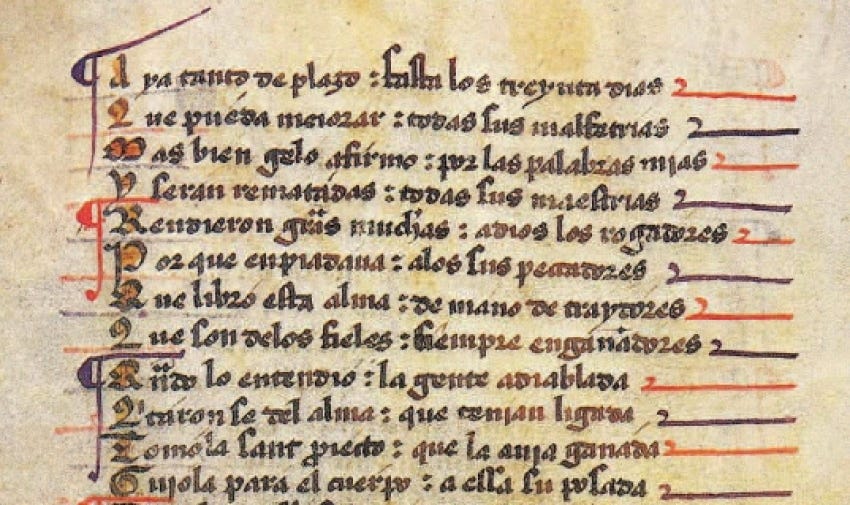 A ya tanto de plazo : fasta los treynta dias
Que pueda meiorar : todas sus malfetrias
Mas bien gelo afirmo : por las palabras mias
y seran rematadas : todas sus maestrias
Rendieron grãs muchas : adios los rogadores
Por que enpiadaua : alos sus pecadores
Que libro esta alma : de mano de traydores
Que son delos fieles : siempre enganadores
Qũdo lo entendio : la gente adiablada
Qitaron se del alma : que tenian ligada
Tomola sant : que la auja ganada
Gujola para el cuerpo : a essa su posada